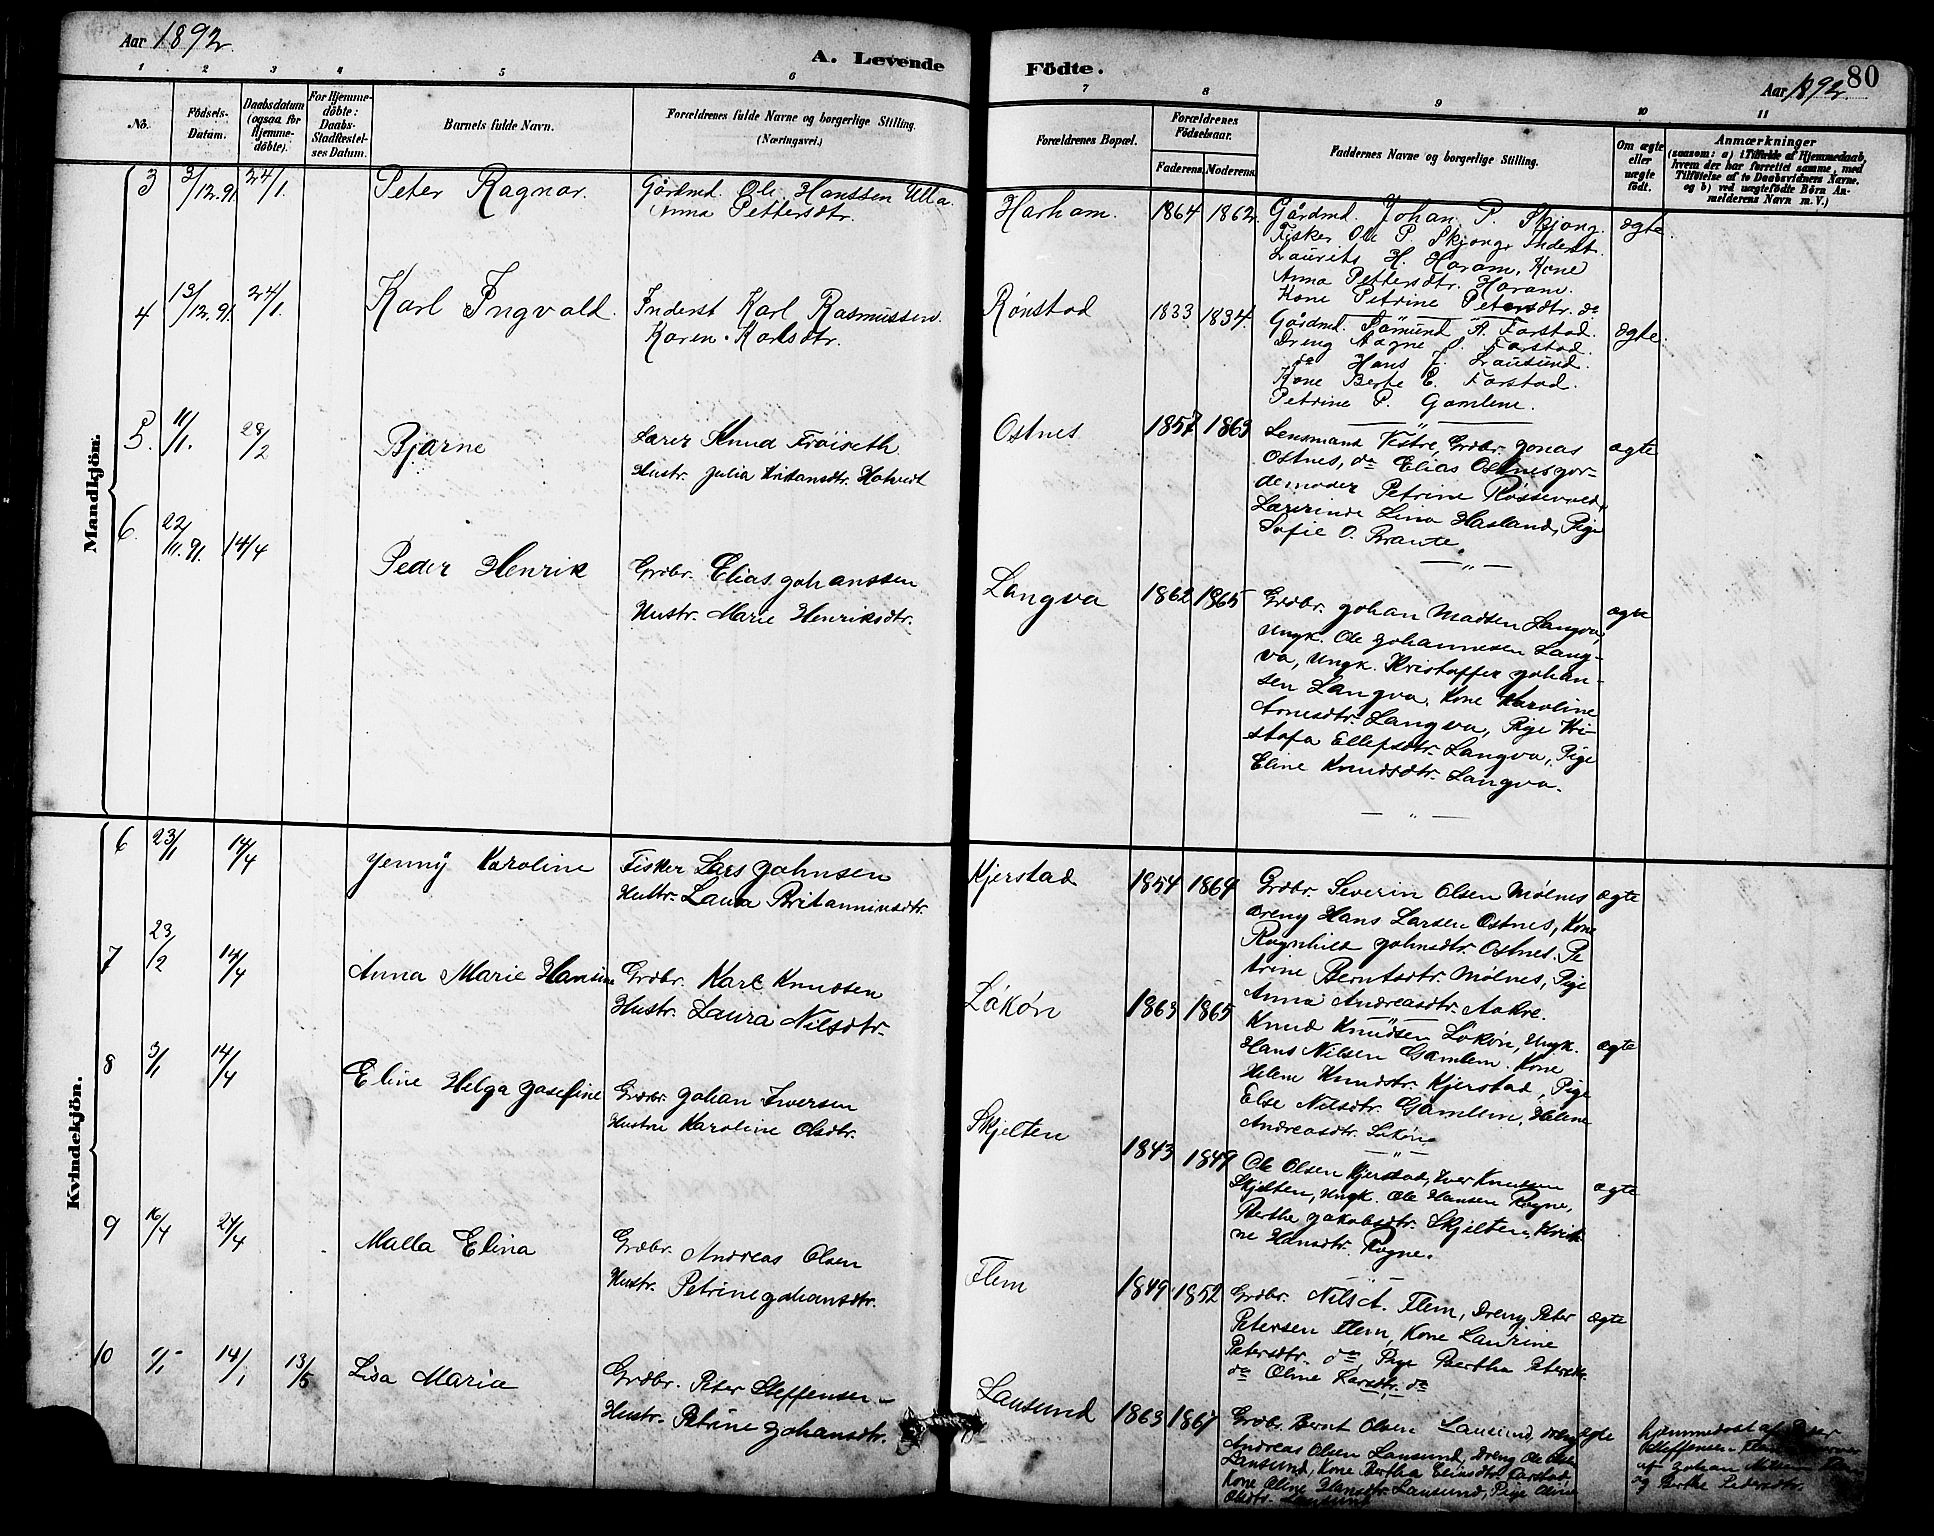 Aar 1892.
A. Levende Födte.
Aar 1892.
80
1 2 3 4 5 6 7 8 9 10 11
No.
Födsels-
Datum.
Daabsdatum
(ogsaa for
Hjemme-
döbte).
For Hjemme-
döbte:
Daabs-
Stadfæstel-
ses Datum.
Barnets fulde Navn.
Forældrenes fulde Navne og borgerlige Stilling.
(Næringsvei.)
Forældrenes Bopæl.
Forældrenes
Födselsaar.
Faderens. Moderens.
Faddernes Navne og borgerlige Stilling.
Om ægte
eller
uægte
født.
Anmærkninger
(saasom: a) i Tilfælde af Hjemmedaab,
hvem der har forrettet samme, med
Tilföielse af to Daabsvidners Navne.
og b) ved uægtefödte Börn An-
melderens Navn m. V.)
Mandkjön.
3 3/12.91 24/1. Peter Ragnar. Gårdmd. Ole Hanssen Ulla.
Anna Pettersdtr.
Harham. 1864 1862. Gårdmd. Johan P. Skjong. ægte.
Fisker Ole P Skjong, Inderst
Laurits H. Haram, Kone
Anna Pettersdtr. Haram.
Kone Petrine Petersdtr. do
4 13/12.91. 24/1. Karl Ingvald. Inderst Karl Rasmussen.
Karen Karlsdtr.
Rönstad 1833 1834. Gårdmd. Sämund A. Farstad. ægte.
Dreng Aagne O. Farstad.
do Hans J. Lausund.
Kone Berte E. Farstad.
Petrine P. Gamlem.
5. 11/1. 28/2 Bjarne Lærer Knud Fröiseth
Hustr. Julia Kristansdtr. Hatvedt
Ostnes 1857 1863 Lensmand Vestre, Grdbr. Jonas ægte
Ostnes, do Elias Ostnes, gor-
demoder Petrine Rossevold,
Lærerinde Lina Hasland, Pige
Sofie O. Brante.
6. 22/11.91. 14/4 Peder Henrik Grdbr. Elias Johanssen
Hustr. Marie Henriksdtr.
Langva 1862 1865 Grdbr. Johan Madsen Langva, ægte
Ungk. Ole Johannesen Lang-
va, Ungk. Kristoffer Johan-
sen Langva, Kone Karoline
Arnesdtr. Langva, Pige Kri-
stofa Ellefsdtr. Langva, Pige
Eline Knudsdtr. Langva.
Kvindekjön.
6 23/1 14/4 Jenny Karoline Fisker Lars Johnsen
Hustr. Laura Britanniusdtr.
Kjerstad 1854 1864 Grdbr. Severin Olsen Mölnes ægte
Dreng Hans Larsen Ostnes, Kone
Ragnhild Johnsdtr. Ostnes. Pe-
trine Berntsdtr. Mölnes, Pige
Anna Andreasdtr. Aakre.
7 23/2 14/4 Anna Marie Hansine Grdbr. Karl Knudsen
Hustr. Laura Nilsdtr.
Lökön 1863 1865 Knud Knudsen Lökön, Ungk. ægte
Hans Nilsen Gamlem. Kone
Helene Knudsdtr. Kjerstad, Pige
Else Nilsdtr. Gamlem, Helene
Andreasdtr. Lökön
8 3/1 14/4 Eline Helga Josefine Grdbr. Johan Iversen
Hustru Karoline Olsdtr.
Skjelten 1843 1849 Ole Olsen Kjerstad, Iver Knudsen ægte
Skjelten, Ungk. Ole Hansen Rogne,
Berthe Jakobsdtr. Skjelten, Kristi-
ne Hansdtr. Rogne.
9 16/4 24/4 Malla Elina Grdbr. Andreas Olsen
Hustr. Petrine Johansdtr.
Flem 1849. 1852 Grdbr. Nils A. Flem, Dreng Peter ægte
Petersen Flem, Kone Laurine
Petersdtr. do, Pige Bertha Petersdtr.
do Oline Larsdtr. do
10 9/1 14/1 13/5 Lisa Maria Grdbr. Peter Steffensen
Hustr. Petrine Johansdtr.
Lausund 1863 1867 Grdbr. Bernt Olsen Lausund, Dreng ægte
Andreas Olsen Lausund, Dreng Ole Olsen
Lausund, Kone Bertha Eliasdtr. Farstad,
Kone Oline Hansdtr. Lausund, Pige Oline
Olsdtr. Lausund
hjemmedöbt af Peter
Steffensen Flem
af Johan
og Berthe Pedersdtr.